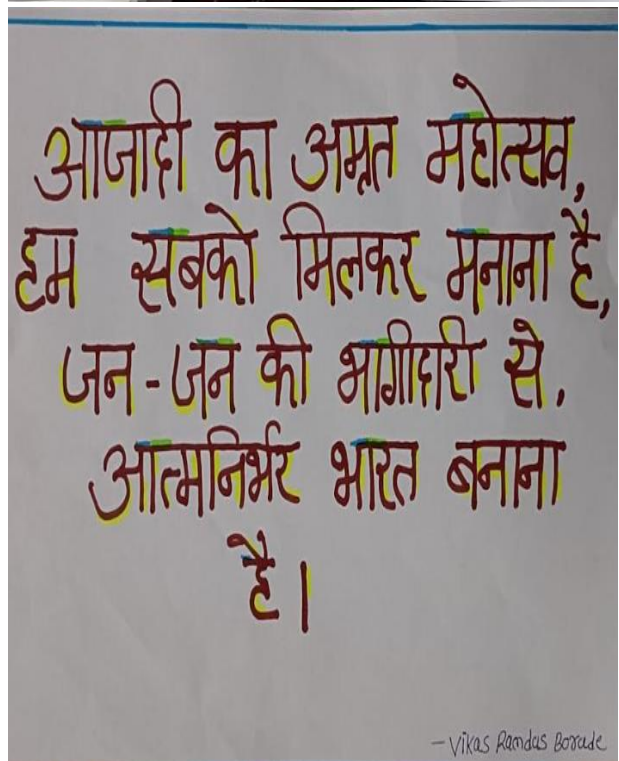 आजादी का अमृत महोत्सव,
हम सबको मिलकर मनाना है,
जन-जन की भागीदारी से,
आत्मनिर्भर भारत बनाना
है।
- Vikas Ramdas Borade